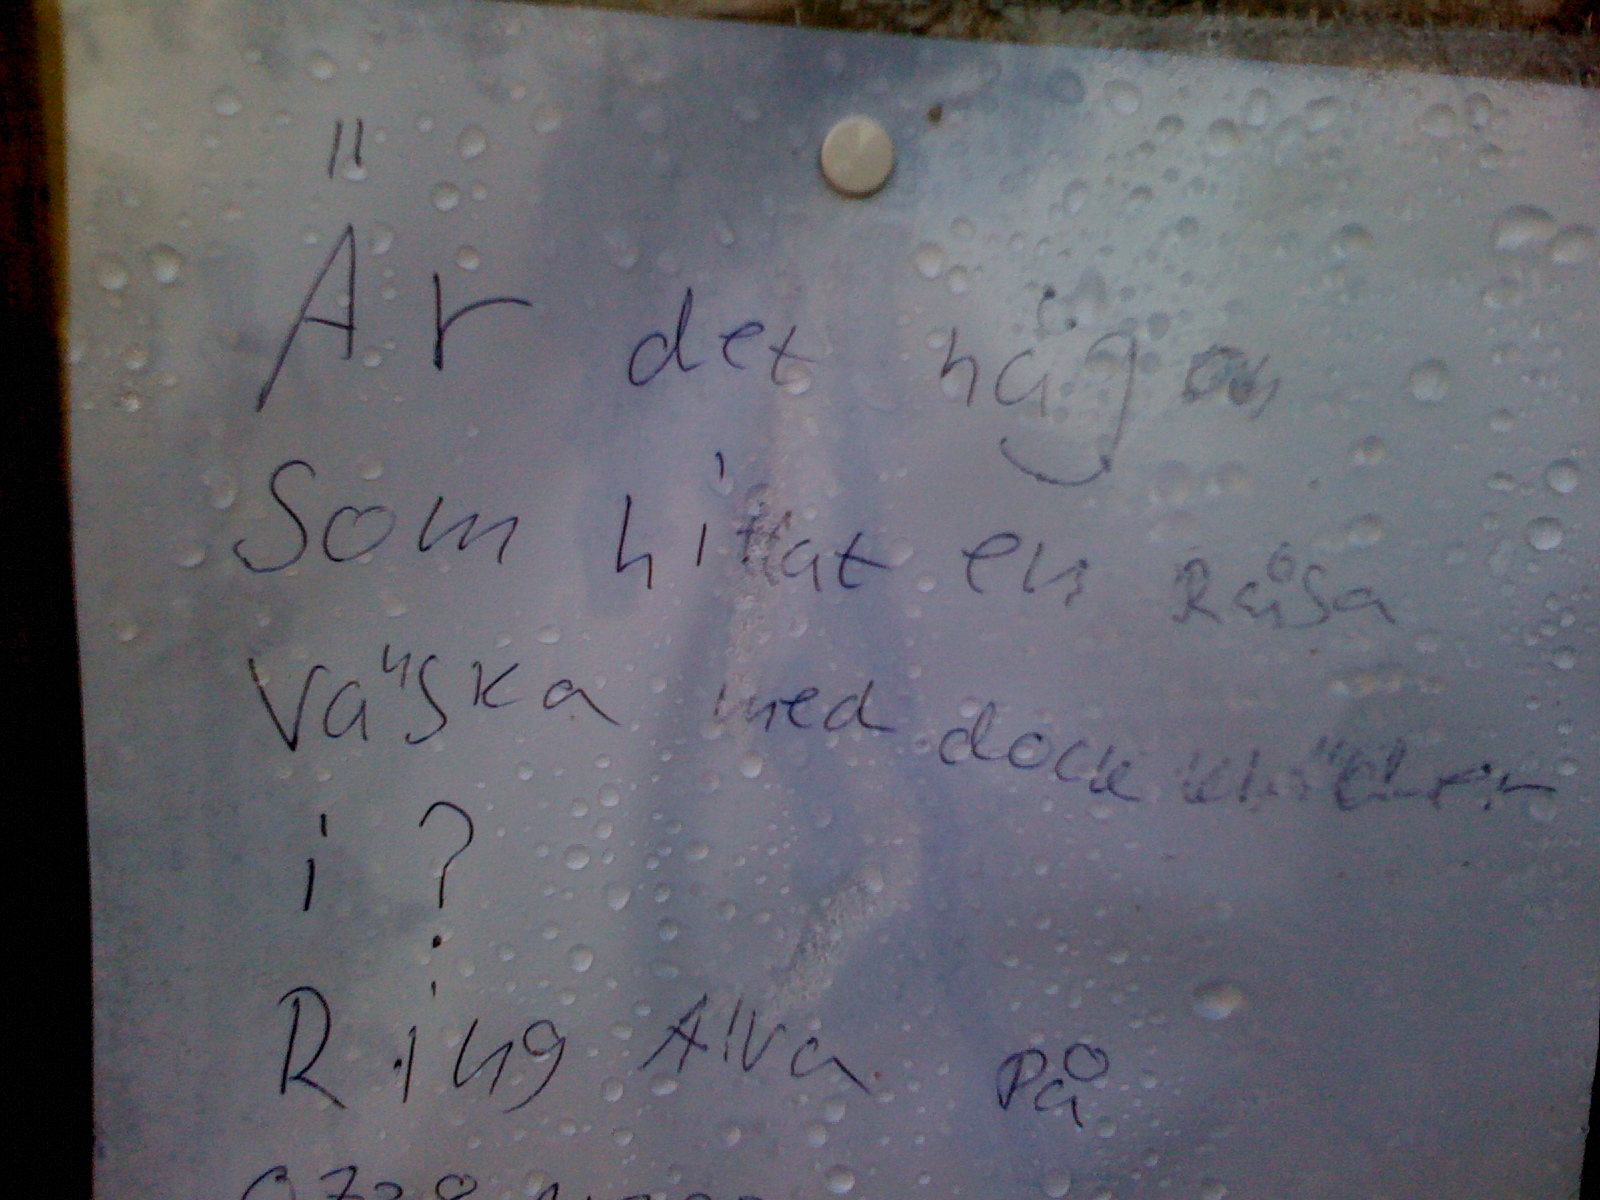 Är det någon
Som hittat en Råsa
Väska med dock kläder
i ?
Ring Alva på